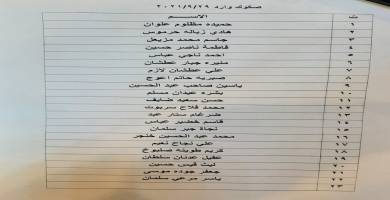 صكوك وارد ٢٠٢١/٩/٢٩
ت الاسم
١ حميده مظلوم علوان
٢ هادي زباله حرموس
٣ جاسم محمد مزيعل
٤ فاطمة ناصر حسين
٥ احمد ناجي عباس
٦ منيره جبار عطشان
٧ علي عطشان لازم
٨ صبريه حاتم اعوج
٩ ياسين صاحب عبد الحسين
١٠ بشره عبدان مسلم
١١ حسن سعيد ضايف
١٢ محمد فلاح سربوت
١٣ ضرغام ستار عبد
١٤ قاسم خضير عباس
١٥ نجاة جبر سلمان
١٦ محمد عبد الحسين خنجر
١٧ علي نجاح نعيم
١٨ كريم طوينه صلبوخ
١٩ عقيل عدنان سلطان
٢٠ ليث قيس حسين
٢١ جعفر جوده موسى
٢٢ ياسر مرعي سلمان
٢٣